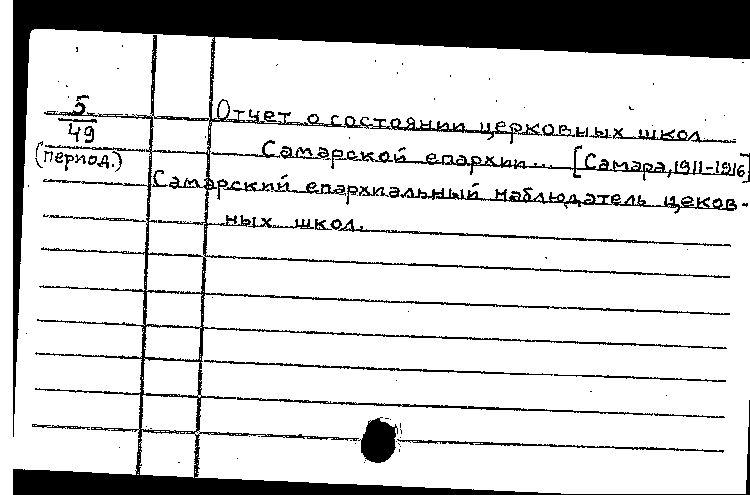 5
49
(период.)
Отчет о состоянии церковных школ
Самарской епархии... [Самара, 1911-1916]
Самарский епархиальный наблюдатель цеков-
ных школ.